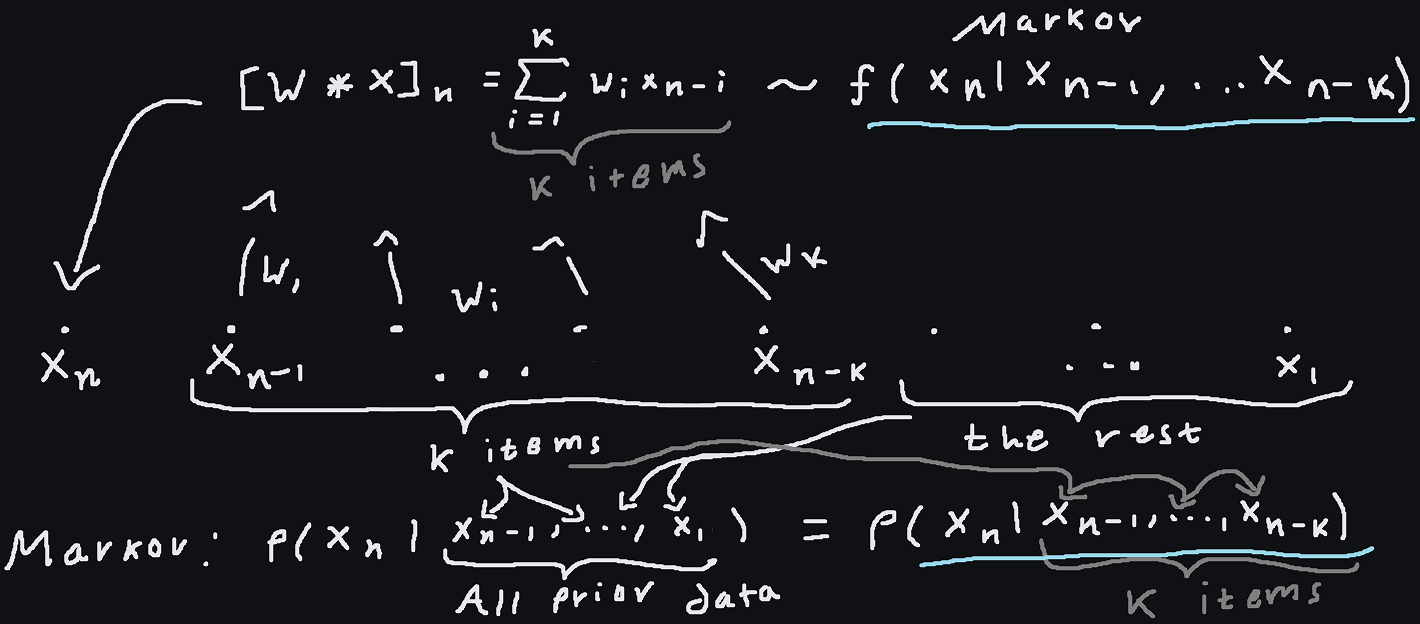 Markov
[W * X]n = K∑i=1 wi xn-i ~ f( xn | xn-1, ... xn-K)
K items
W1 Wi WK
xn xn-1 ... xn-K ... x1
K items the rest
Markov: P( xn | xn-1, ..., x1 ) = P( xn | xn-1, ..., xn-K)
All prior data K items